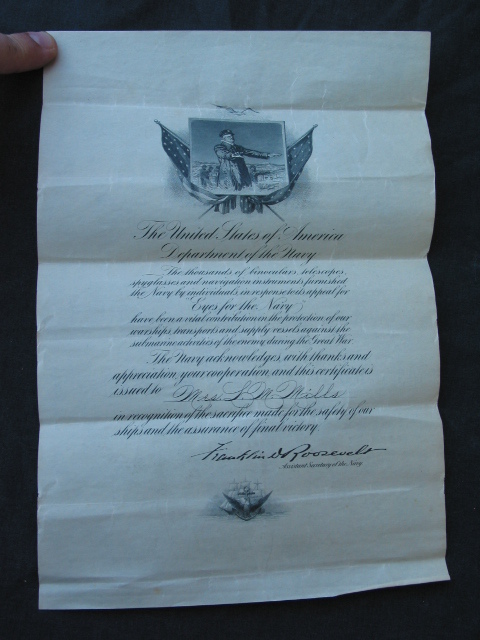 The United States of America
Department of the Navy
The thousands of binoculars, telescopes,
spyglasses and navigation instruments furnished
the Navy by individuals, in response to its appeal for
"Eyes for the Navy"
have been a vital contribution in the protection of our
warships, transports and supply vessels against the
submarine activities of the enemy during the Great War.
The Navy acknowledges, with thanks and
appreciation, your cooperation, and this certificate is
issued to Mrs. L. M. Mills
in recognition of the sacrifice made for the safety of our
ships and the assurance of final victory.
Franklin D Roosevelt
Assistant Secretary of the Navy.